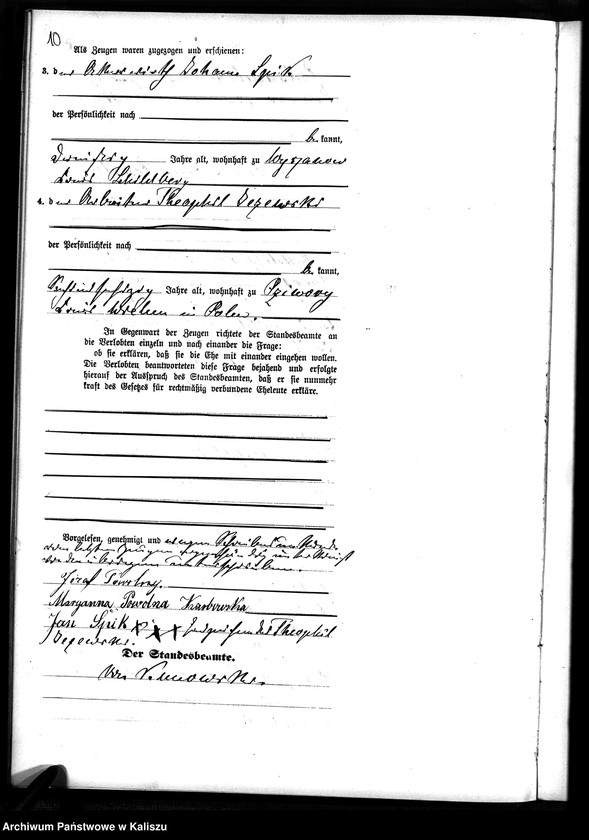 10
Als Zeugen waren zugezogen und erschienen:
3. der Johann Spik
der Persönlichkeit nach
be kannt,
Jahre alt, wohnhaft zu Wyszanow
Kreis Schildberg
4. der Arbeiter Theophil Jezewski
der Persönlichkeit nach
be kannt,
Jahre alt, wohnhaft zu
Kreis in Polen.
In Gegenwart der Zeugen richtete der Standesbeamte an
die Verlobten einzeln und nach einander die Frage:
ob sie erklären, daß sie die Ehe mit einander eingehen wollen.
Die Verlobten beantworteten diese Frage bejahend und erfolgte
hierauf der Ausspruch des Standesbeamten, daß er sie nunmehr
kraft des Gesetzes für rechtmäßig verbundene Eheleute erkläre.
Vorgelesen, genehmigt und wegen
Zeugen
von den übrigen unterschrieben.
Józef
Maryanna Powolna
Jan Spik xxx Handzeichen des Theophil
Jezewski.
Der Standesbeamte.
Archiwum Państwowe w Kaliszu